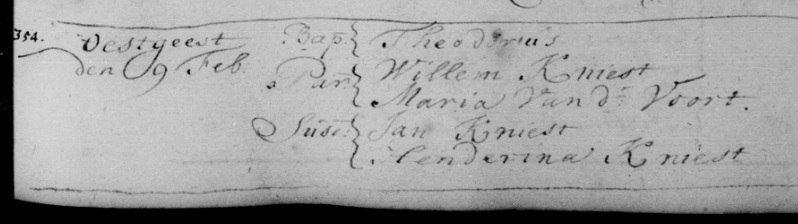 354. Oestgeest Bap: { Theodorus
den 9 Feb. Par: { Willem Kniest
Maria Van dr Voort.
Susc: { Jan Kniest
Henderina Kniest